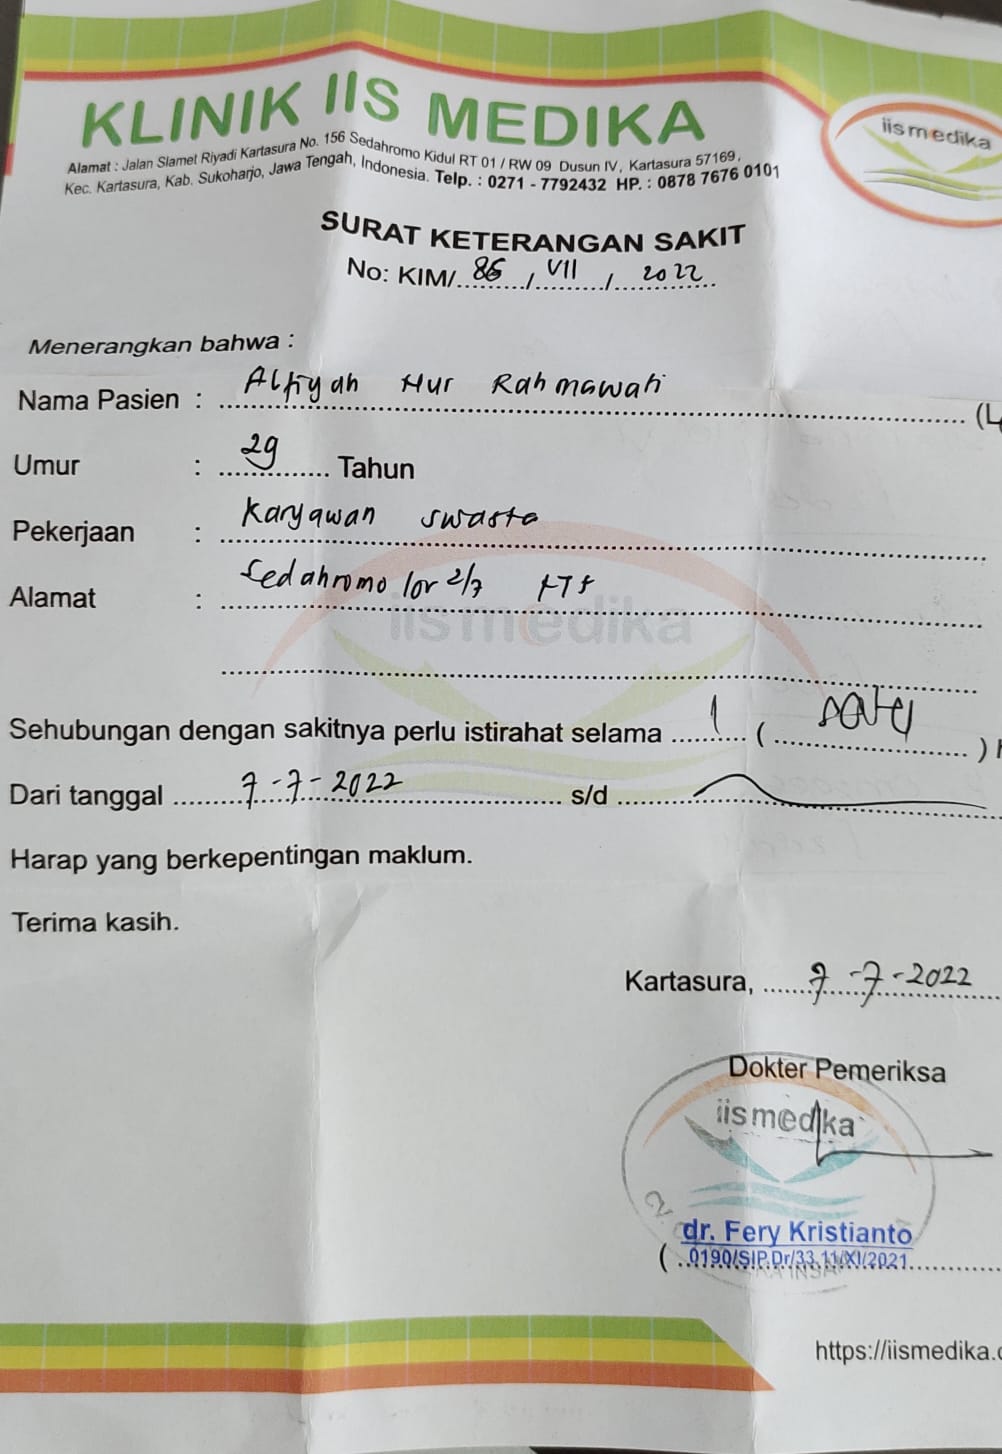 KLINIK IIS MEDIKA
iismedika
Alamat : Jalan Slamet Riyadi Kartasura No. 156 Sedahromo Kidul RT 01 / RW 09 Dusun IV, Kartasura 57169,
Kec. Kartasura, Kab. Sukoharjo, Jawa Tengah, Indonesia. Telp. : 0271 - 7792432 HP. : 0878 7676 0101
SURAT KETERANGAN SAKIT
No: KIM/ 86 / VII / 2022
Menerangkan bahwa :
Nama Pasien : Alfiyah Nur Rahmawati (L
Umur : 29 Tahun
Pekerjaan : Karyawan swasta
Alamat : Sedahromo lor 2/7 KTS
iismedika
Sehubungan dengan sakitnya perlu istirahat selama 1 ( satu )
Dari tanggal 7-7-2022 s/d
Harap yang berkepentingan maklum.
Terima kasih.
Kartasura, 7-7-2022
Dokter Pemeriksa
iismedika
CV.
dr. Fery Kristianto
( 0190/SIP.Dr/33.11/XI/2021
https://iismedika.